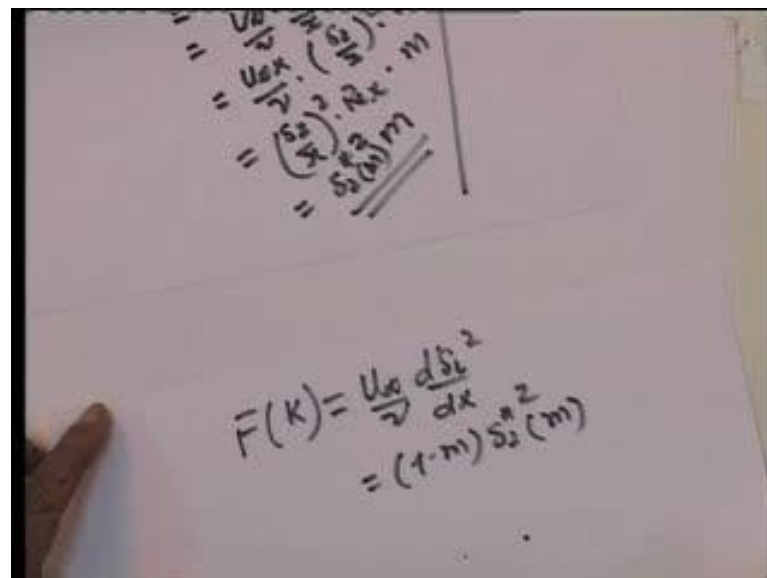 = U∞/ν
= U∞x/ν · (δ₂/x)² · m
= (δ₂/x)² · Rex · m
= δ₂*²(m) m
F(K) = U∞/ν dδ₂²/dx
= (1-m) δ₂*²(m)